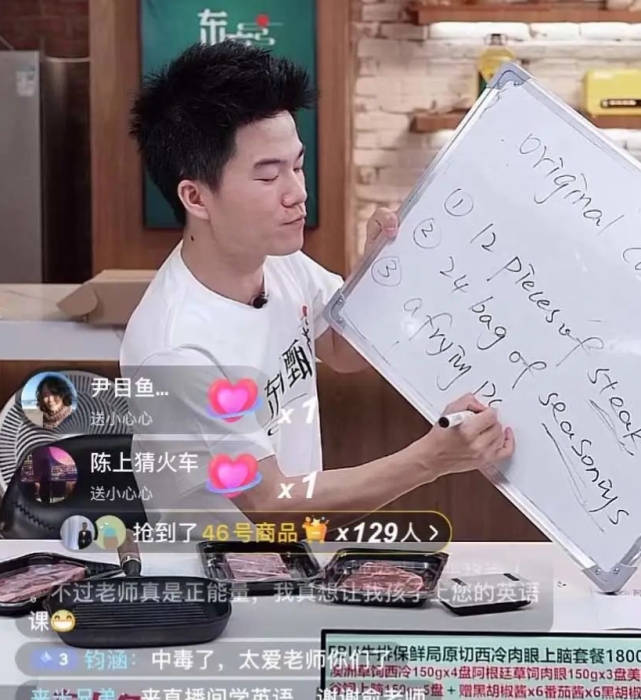 东
original
① 12 pieces of steak
② 24 bag of seasonings
③ a frying
甄
尹目鱼...
送小心心
x 1
陈上猜火车
送小心心
x 1
抢到了 46号商品 x129人 >
。不过老师真是正能量，我真想让我孩子上您的英语
课😁
3 钧涵：中毒了，太爱老师你们了
来直播间学英语，谢谢俞老师
保鲜局原切西冷肉眼上脑套餐1800
澳洲草饲西冷150gx4盘阿根廷草饲肉眼150gx3盘
赠黑胡椒酱x6番茄酱